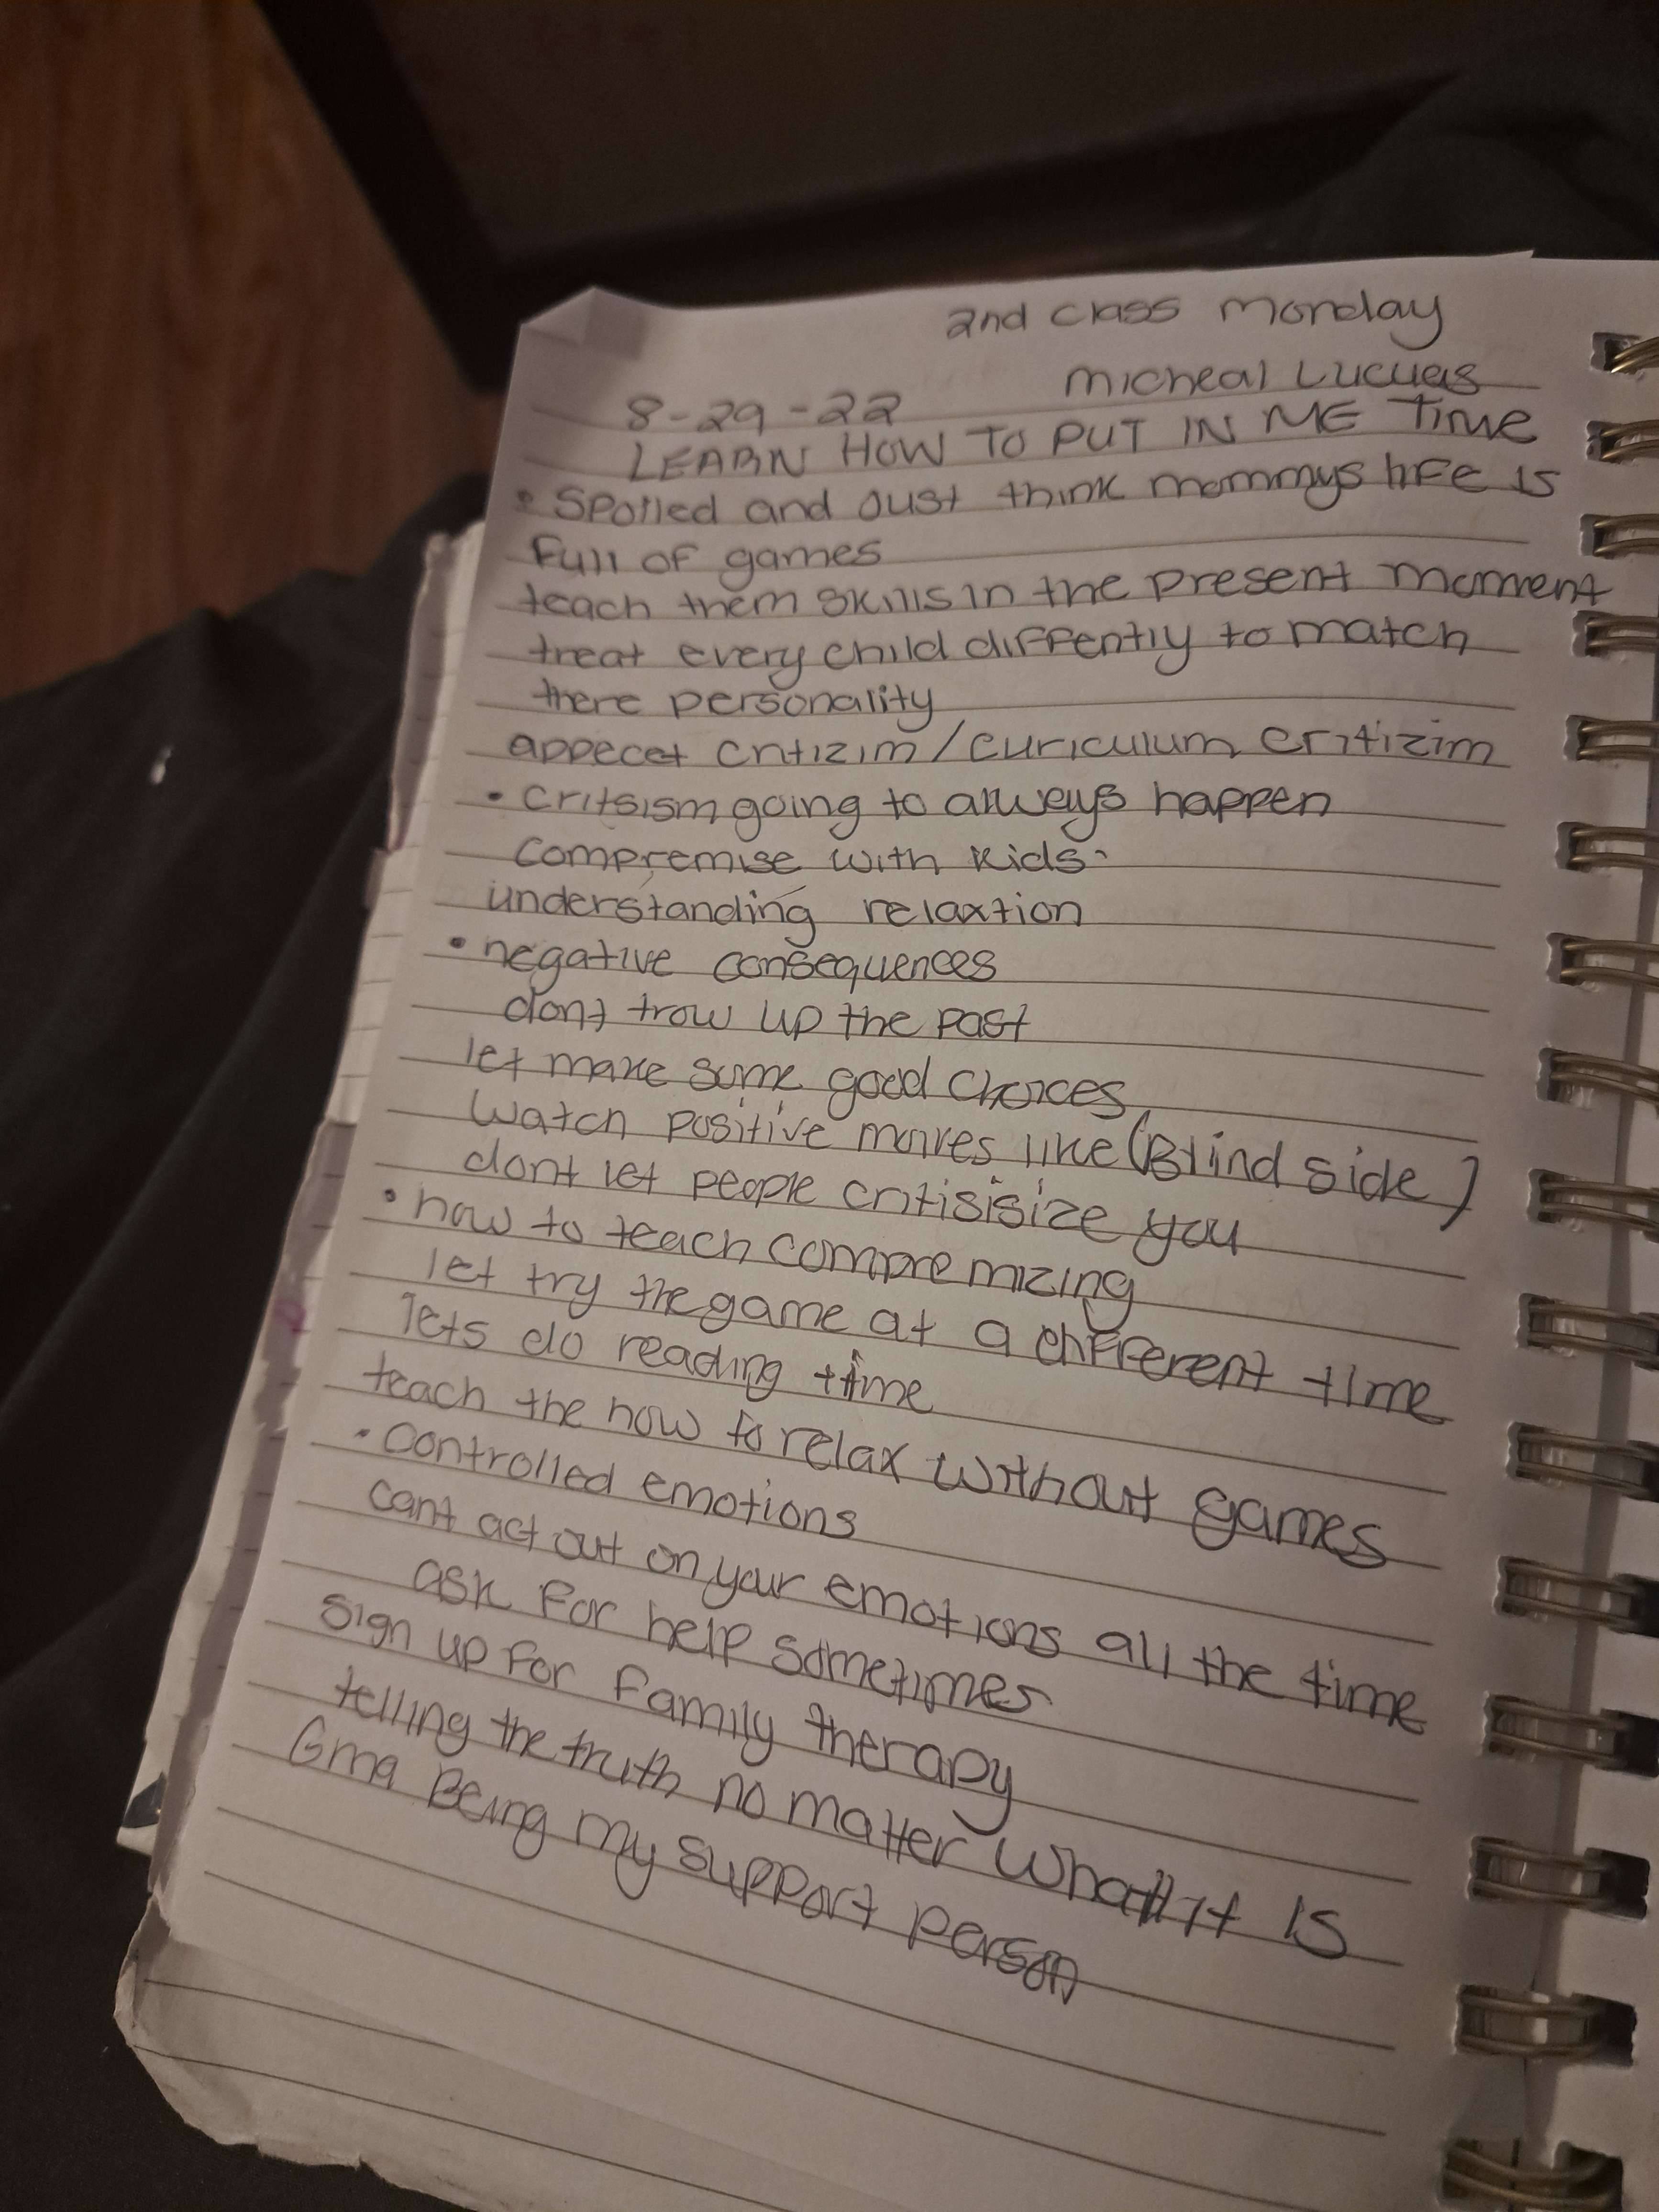 2nd class monday
micheal Lucues
8-29-22
LEARN HOW TO PUT IN ME Time
• Spoiled and Just think mommys life is
Full of games
teach them skills in the present moment
treat every child diffently to match
there personality
appecet critizim/curiculum critizim
• Critsism going to always happen
compremise with kids.
understanding relaxtion
• negative consequences
dont trow up the past
let make some good choices
Watch positive moives like (Blind side)
dont let people critisisize you
• how to teach compremizing
let try the game at a different time
lets do reading time
teach the how to relax without games
• controlled emotions
cant act out on your emotions all the time
ask for help sometimes
sign up for Family therapy
telling the truth no matter what it is
Gma Being my support person